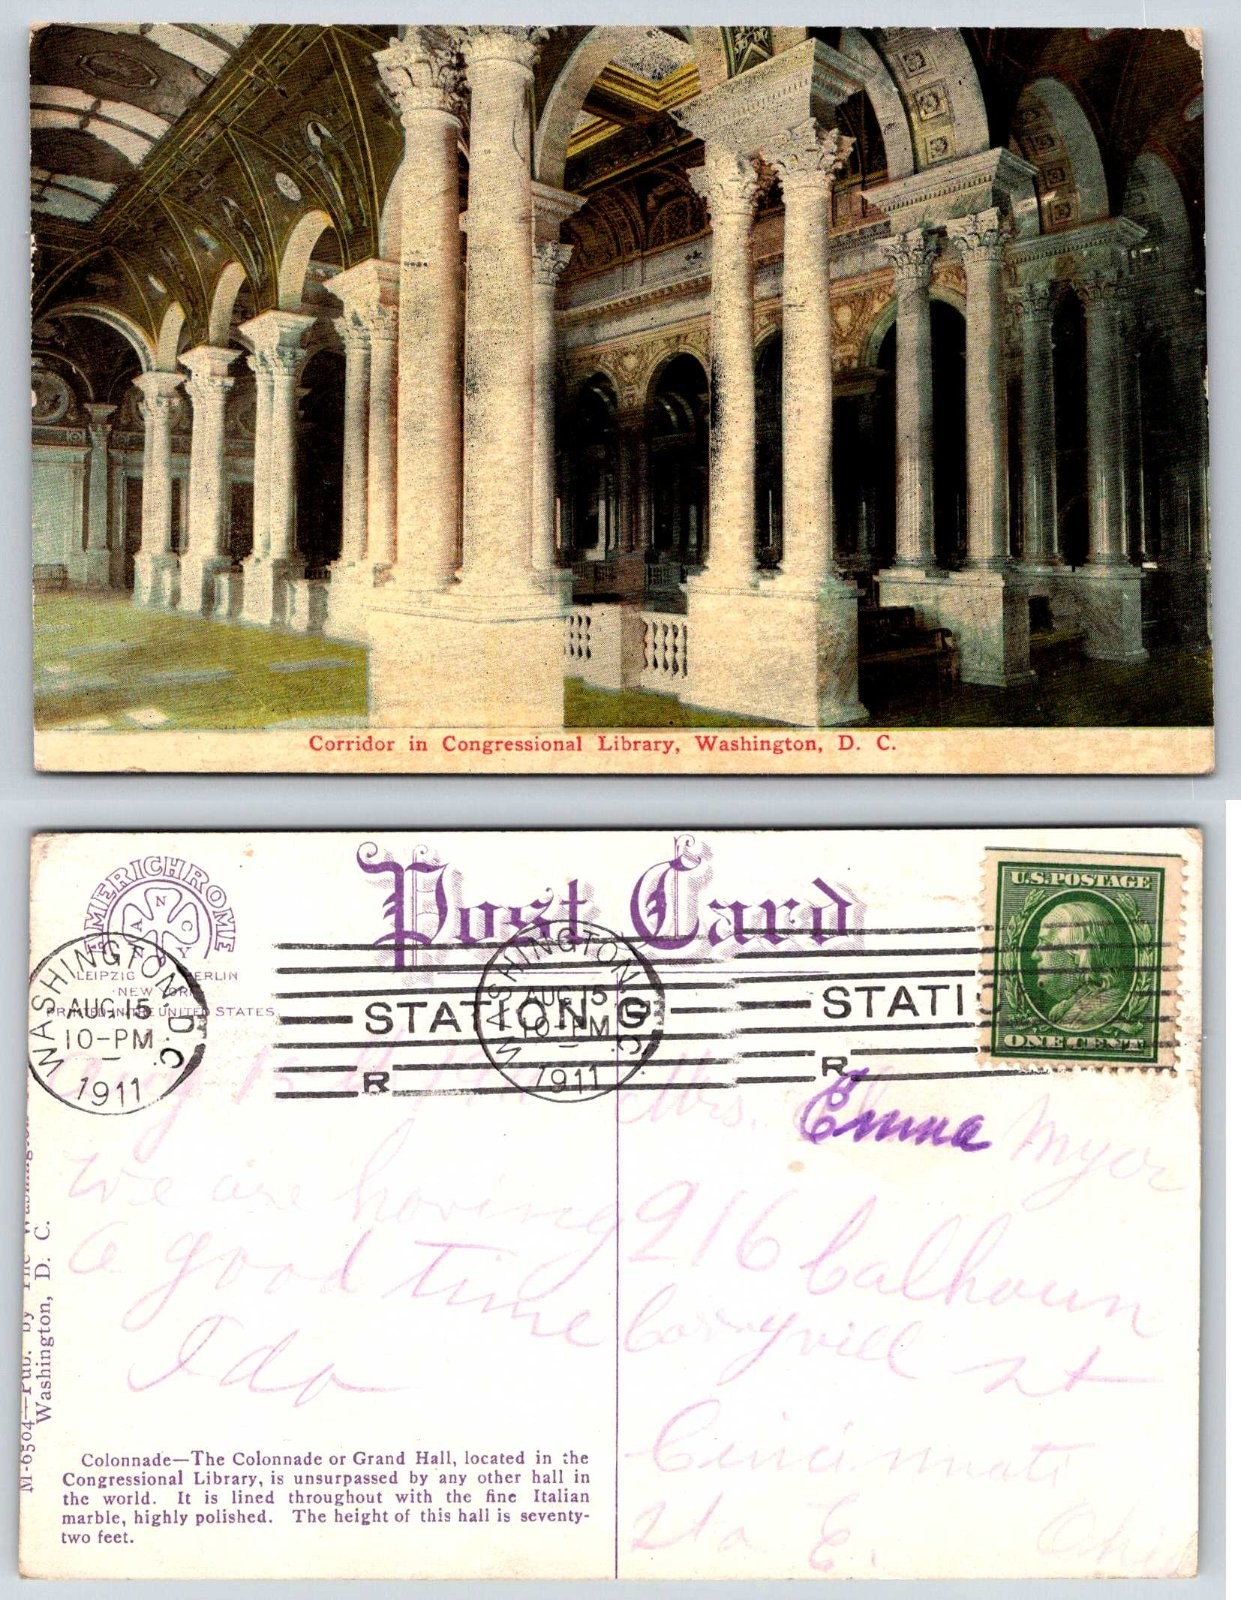 Corridor in Congressional Library, Washington, D. C.
AMERICHROME
A N C
LEIPZIG BERLIN
NEW YORK
PRINTED IN THE UNITED STATES
Post Card
U.S. POSTAGE
ONE CENT
WASHINGTON D.C.
AUG 15
10-PM
1911
STATION G
R
WASHINGTON D.C.
AUG 15
10-PM
1911
STATI
R
Mrs. Emma Myer
216 Calhoun
St
Cincinnati
Sta E. Ohio
we are having
a good time
Ida
M-6504—Pub. by The Washington
Washington, D. C.
Colonnade—The Colonnade or Grand Hall, located in the
Congressional Library, is unsurpassed by any other hall in
the world. It is lined throughout with the fine Italian
marble, highly polished. The height of this hall is seventy-
two feet.